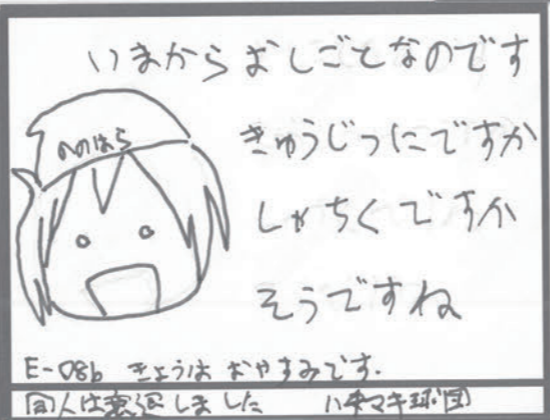 いまからおしごとなのです
ののはら
きゅうじつにですか
しゃちくですか
そうですね
E-08b きょうは おやすみです.
同人は衰退しました ハチマキ球団